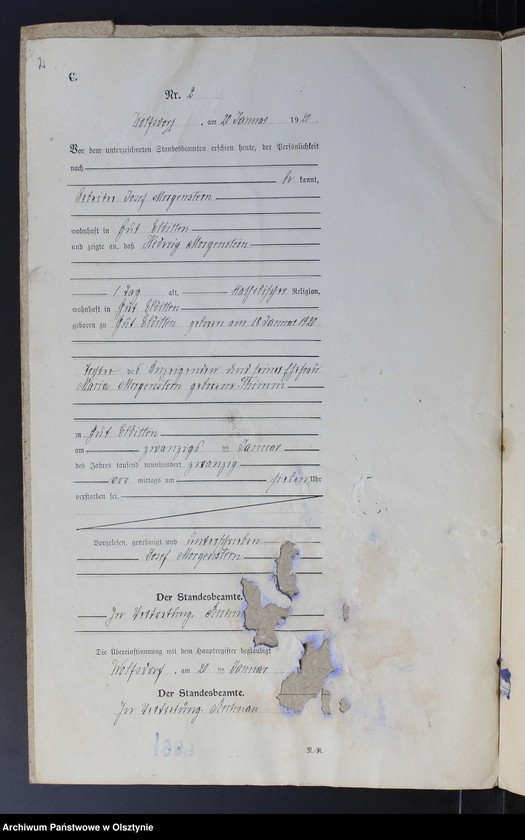 C.
Nr. 2
Wolfsdorf, am 20 Januar 1920
Vor dem unterzeichneten Standesbeamten erschien heute, der Persönlichkeit
nach
be kannt,
Arbeiter Josef Morgenstern
wohnhaft in Gut Elditten
und zeigte an, daß Hedwig Morgenstern
1 Tag alt, katholischer Religion,
wohnhaft in Gut Elditten
geboren zu Gut Elditten geboren am 18 Januar 1920
Tochter des Anzeigenden und seiner Ehefrau
Maria Morgenstern geborene Thimm
zu Gut Elditten
am Januar
des Jahres tausend neunhundert zwanzig
vor mittags um sieben Uhr
verstorben sei.
Vorgelesen, genehmigt und unterschrieben
Josef Morgenstern
Der Standesbeamte.
In Vertretung.
Die Übereinstimmung mit dem Hauptregister beglaubigt
Wolfsdorf, am 20 ten Januar
Der Standesbeamte.
In Vertretung.
N.-R.
Archiwum Państwowe w Olsztynie